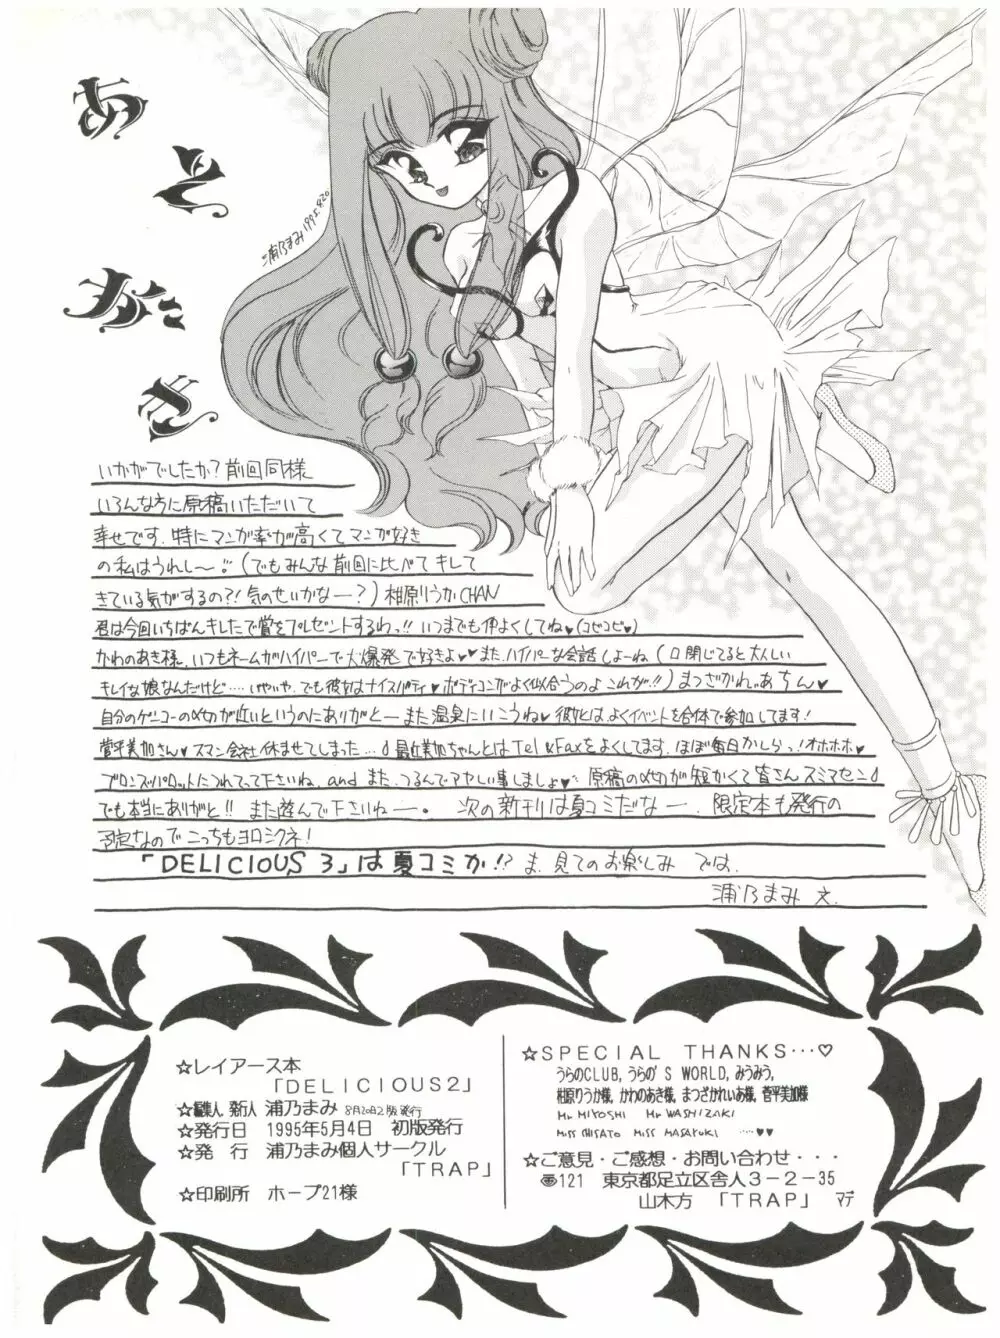 あとがき
浦乃まみ 1995.4.20
いかがでしたか?前回同様
いろんな方に原稿いただいて
幸せです。特にマンガ率が高くてマンガ好き
の私はうれし〜(でもみんな前回に比べてキレて
きている気がするの?!気のせいかなー?)相原りうかCHAN
君は今回いちばんキレたで賞をプレゼントするわっ!!いつまでも仲よくしてね♥(コピコピ♥)
かわのあき様、いつもネームがハイパーで大爆発で好きよ♥♥また、ハイパーな会話しよーね(口閉じてると大人しい
キレイな娘なんだけど…いやいや、でも彼女はナイスバディ♥ボディコンがよく似合うのよこれが!!)まつざかれいあちん♥
自分のゲンコーの〆切が近いというのにありがとーまた温泉にいこうね♥彼女とは、よくイベントを合体で参加してます!
菅平美加さん♥スマン会社休ませてしまった…♪最近美加ちゃんとはTel&Faxをよくしてます。ほぼ毎日かしらっ!オホホホ♥
ブロンズパロットにつれてって下さいね、and また、つるんでアヤしい事しましょ♥ 原稿の〆切が短かくて皆さんスミマセン♪
でも本当にありがと!!また遊んで下さいねー。次の新刊は夏コミだなー。限定本も発行の
予定なのでこっちもヨロシクネ!
「DELICIOUS 3」は夏コミか!?ま、見てのお楽しみ では、
浦乃まみ
☆レイアース本
「DELICIOUS2」
☆編集人 発行人 浦乃まみ 8月20日2版発行
☆発行日 1995年5月4日 初版発行
☆発 行 浦乃まみ個人サークル
「TRAP」
☆印刷所 ホープ21様
☆SPECIAL THANKS…♡
うらのCLUB, うらの'S WORLD, みうみう,
相原りうか様, かわのあき様, まつざかれいあ様, 菅平美加様
Mr MIYOSHI Mr WASHIZAKI
Miss CHISATO Miss MASAYUKI ……♥♥
☆ご意見・ご感想・お問い合わせ・・・
〠121 東京都足立区舎人3−2−35
山木方 「TRAP」 マデ